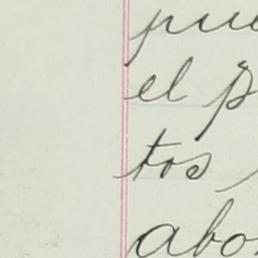 pue
el p
tos
abo